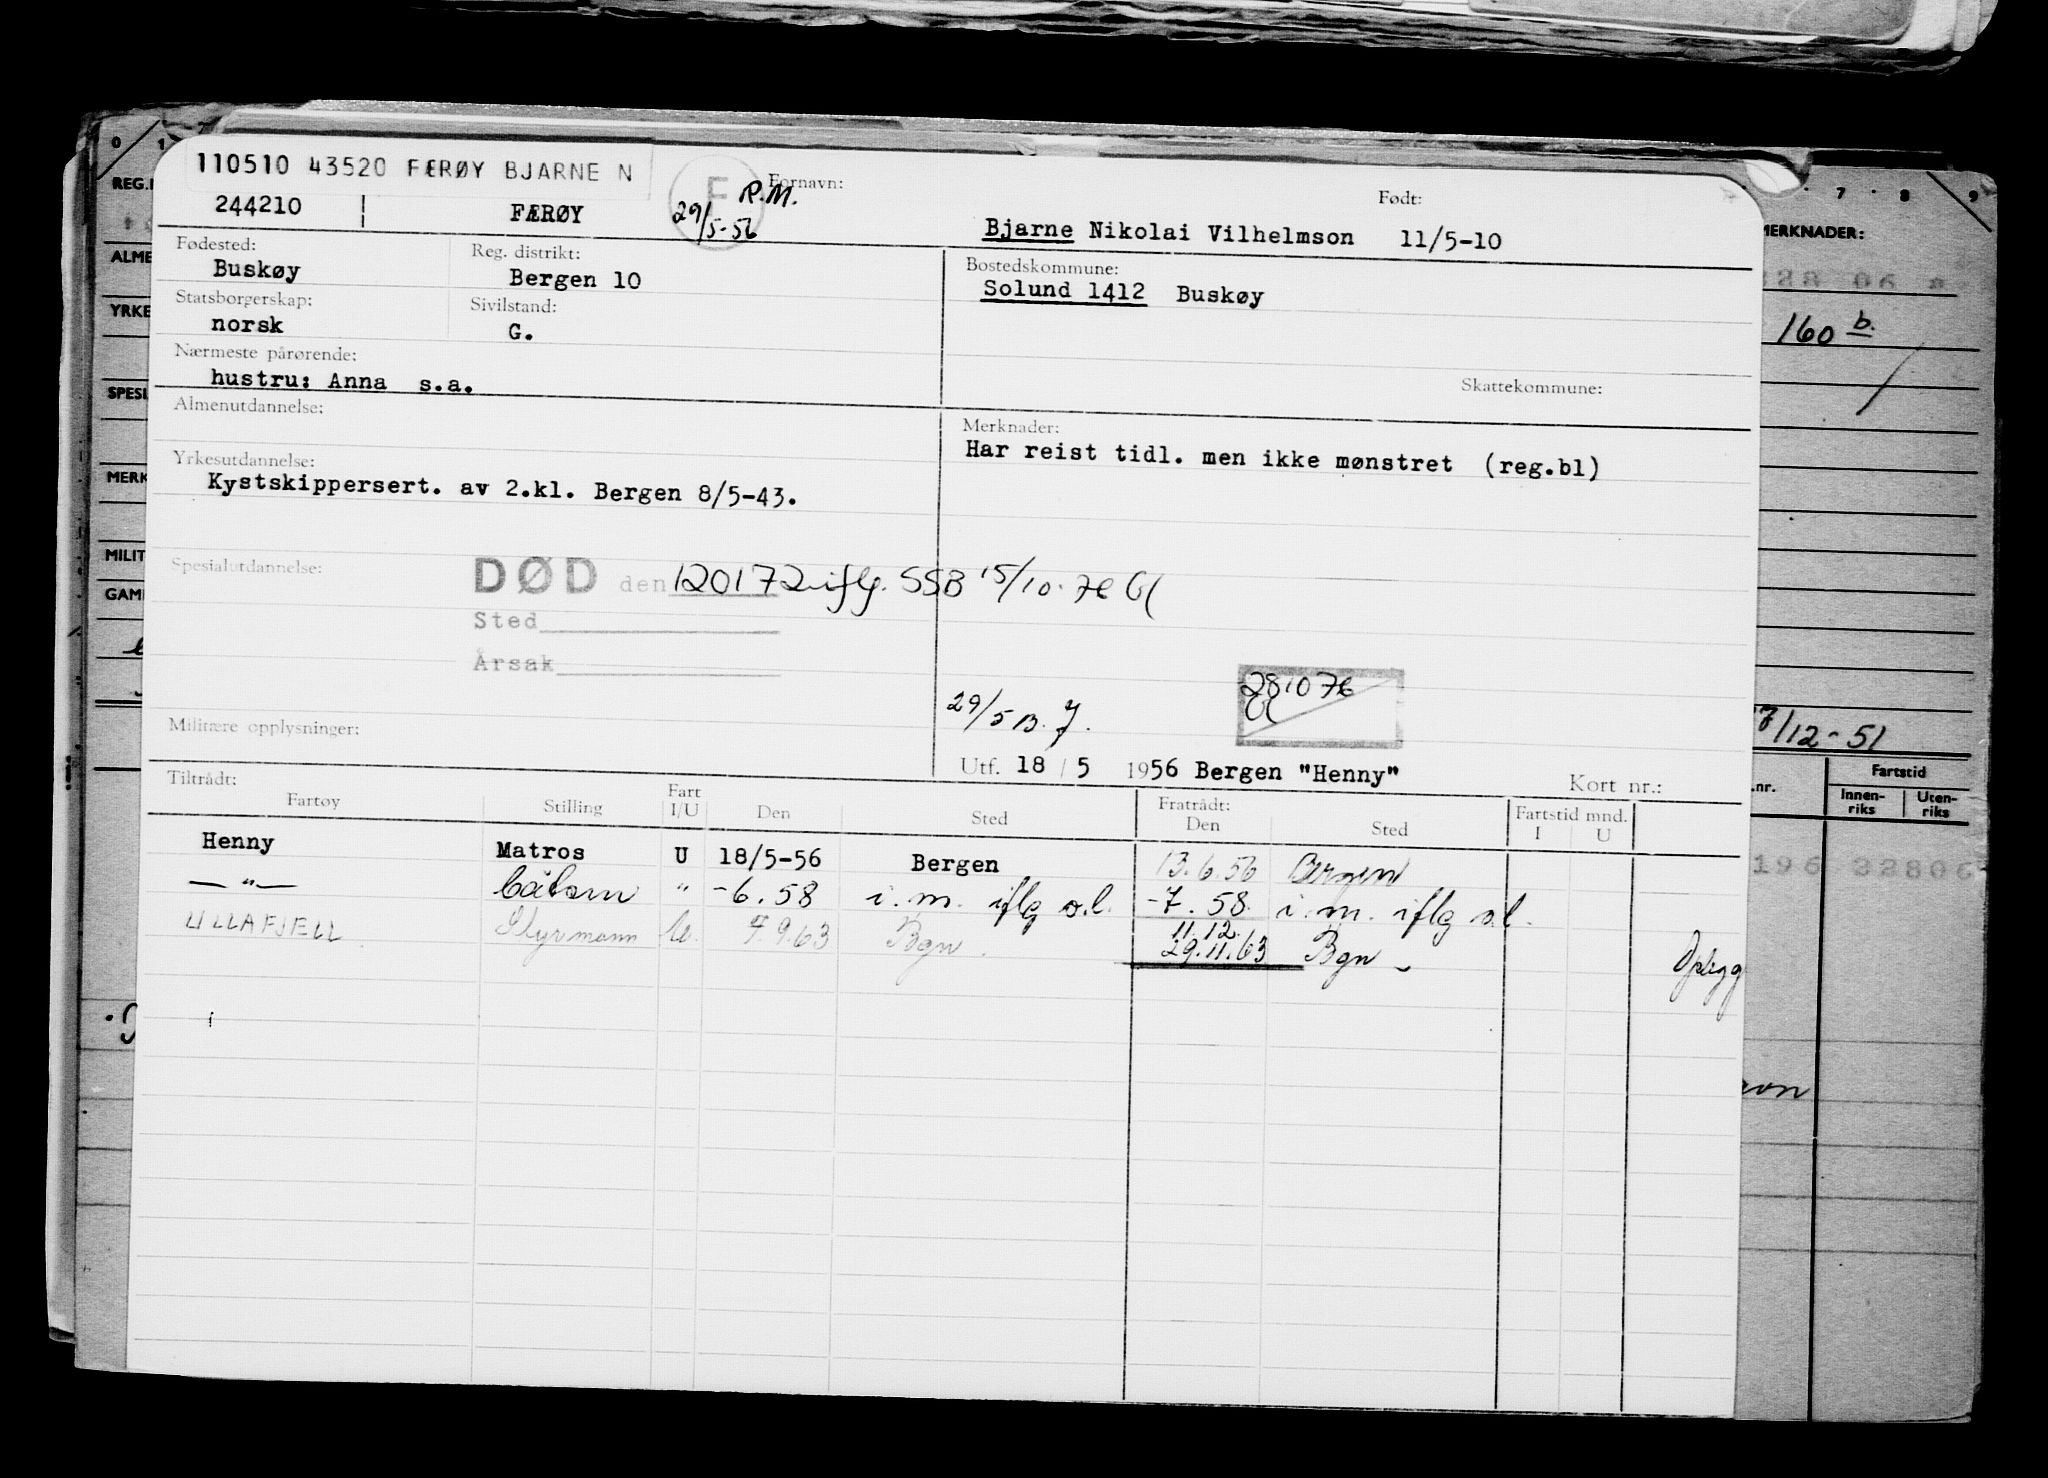 110510 43520 FÆRØY BJARNE N
F
R.M.
29/5-56
Fornavn:
Født:
244210
FÆRØY
Bjarne Nikolai Vilhelmson 11/5-10
Fødested:
Buskøy
Reg. distrikt:
Bergen 10
Bostedskommune:
Solund 1412 Buskøy
Statsborgerskap:
norsk
Sivilstand:
G.
Nærmeste pårørende:
hustru: Anna s.a.
Skattekommune:
Almenutdannelse:
Merknader:
Har reist tidl. men ikke mønstret (reg.bl)
Yrkesutdannelse:
Kystskippersert. av 2.kl. Bergen 8/5-43.
Spesialutdannelse:
DØD den 120172 iflg. SSB 15/10-76
Sted
Årsak
281076
29/5
Militære opplysninger:
Utf. 18 / 5 1956 Bergen "Henny"
Kort nr.:
Tiltrådt:
Fartøy Stilling Fart I/U Den Sted Fratrådt: Den Sted Fartstid mnd. I U
Henny Matros U 18/5-56 Bergen 13.6.56 Bergen
—"— Båtsm " -6.58 i.m. iflg o.l. -7.58 i.m. iflg o.l.
11.12.
ULLAFJELL Styrmann U. 7.9.63 Bgn. 29.11.63 Bgn
Opplegg
0 1
7 8 9
REG.
ALME
YRKE
SPESI
MERK
MILIT
GAM
MERKNADER:
160 b.
7/12-51
.nr.
Fartstid
Innen-riks
Uten-riks
196 32806